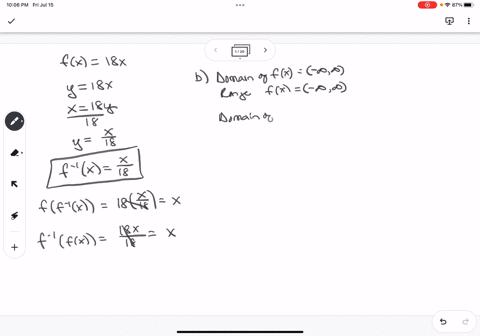 10:06 PM Fri Jul 15
87%
1 / 20
f(x) = 18x
y = 18x
x = 18y
18
y = x/18
f⁻¹(x) = x/18
f(f⁻¹(x)) = 18(x/18) = x
f⁻¹(f(x)) = 18x/18 = x
b) Domain of f(x) = (-∞, ∞)
Range f(x) = (-∞, ∞)
Domain of